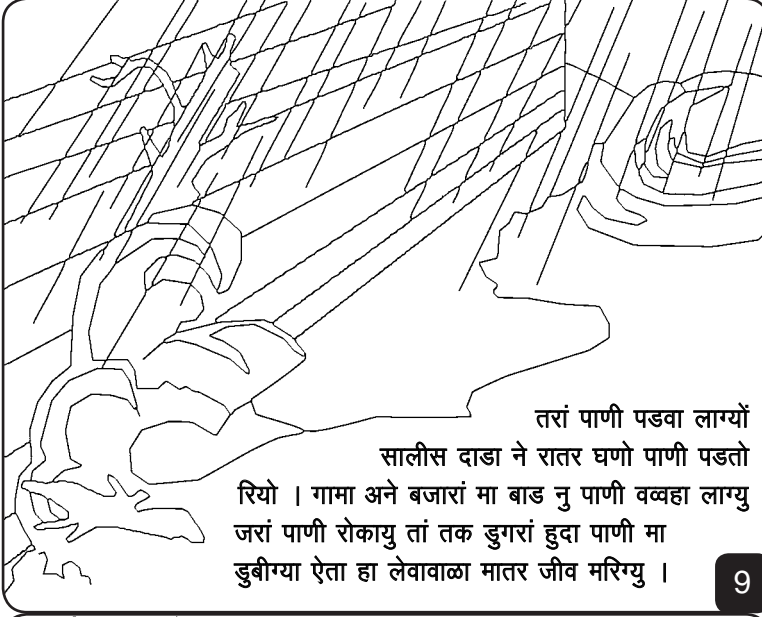 तरां पाणी पडवा लाग्यों
सालीस दाडा ने रातर घणो पाणी पडतो
रियो । गामा अने बजारां मा बाड नु पाणी वव्वहा लाग्यु
जरां पाणी रोकायु तां तक डुगरां हुदा पाणी मा
डुबीग्या ऐता हा लेवावाळा मातर जीव मरिग्यु ।
9